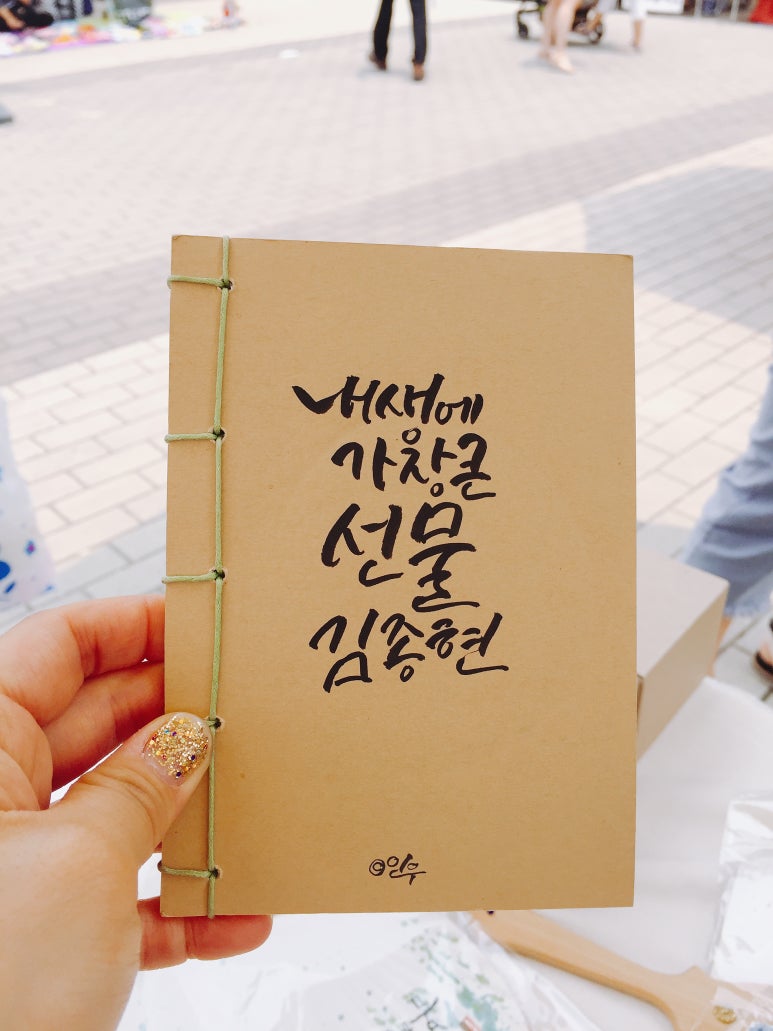 내생에
가장큰
선물
김종현
@인우